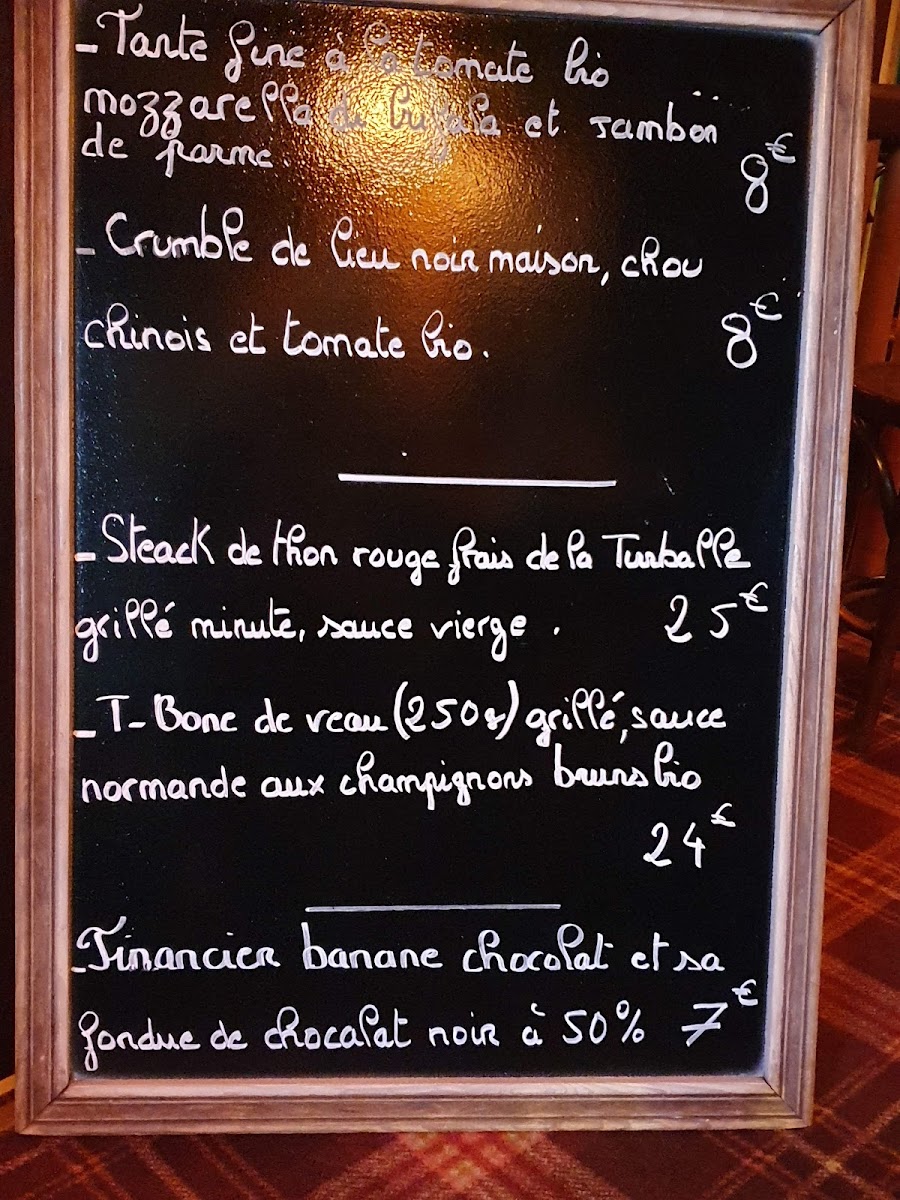 - Tarte fine à la tomate bio
mozzarella di bufala et jambon
de parme.
8€
- Crumble de lieu noir maison, chou
chinois et tomate bio.
8€
- Steack de thon rouge frais de la Turballe
grillé minute, sauce vierge . 25€
- T-Bone de veau (250g) grillé, sauce
normande aux champignons bruns bio
24€
- Financier banane chocolat et sa
fondue de chocalat noir à 50% 7€